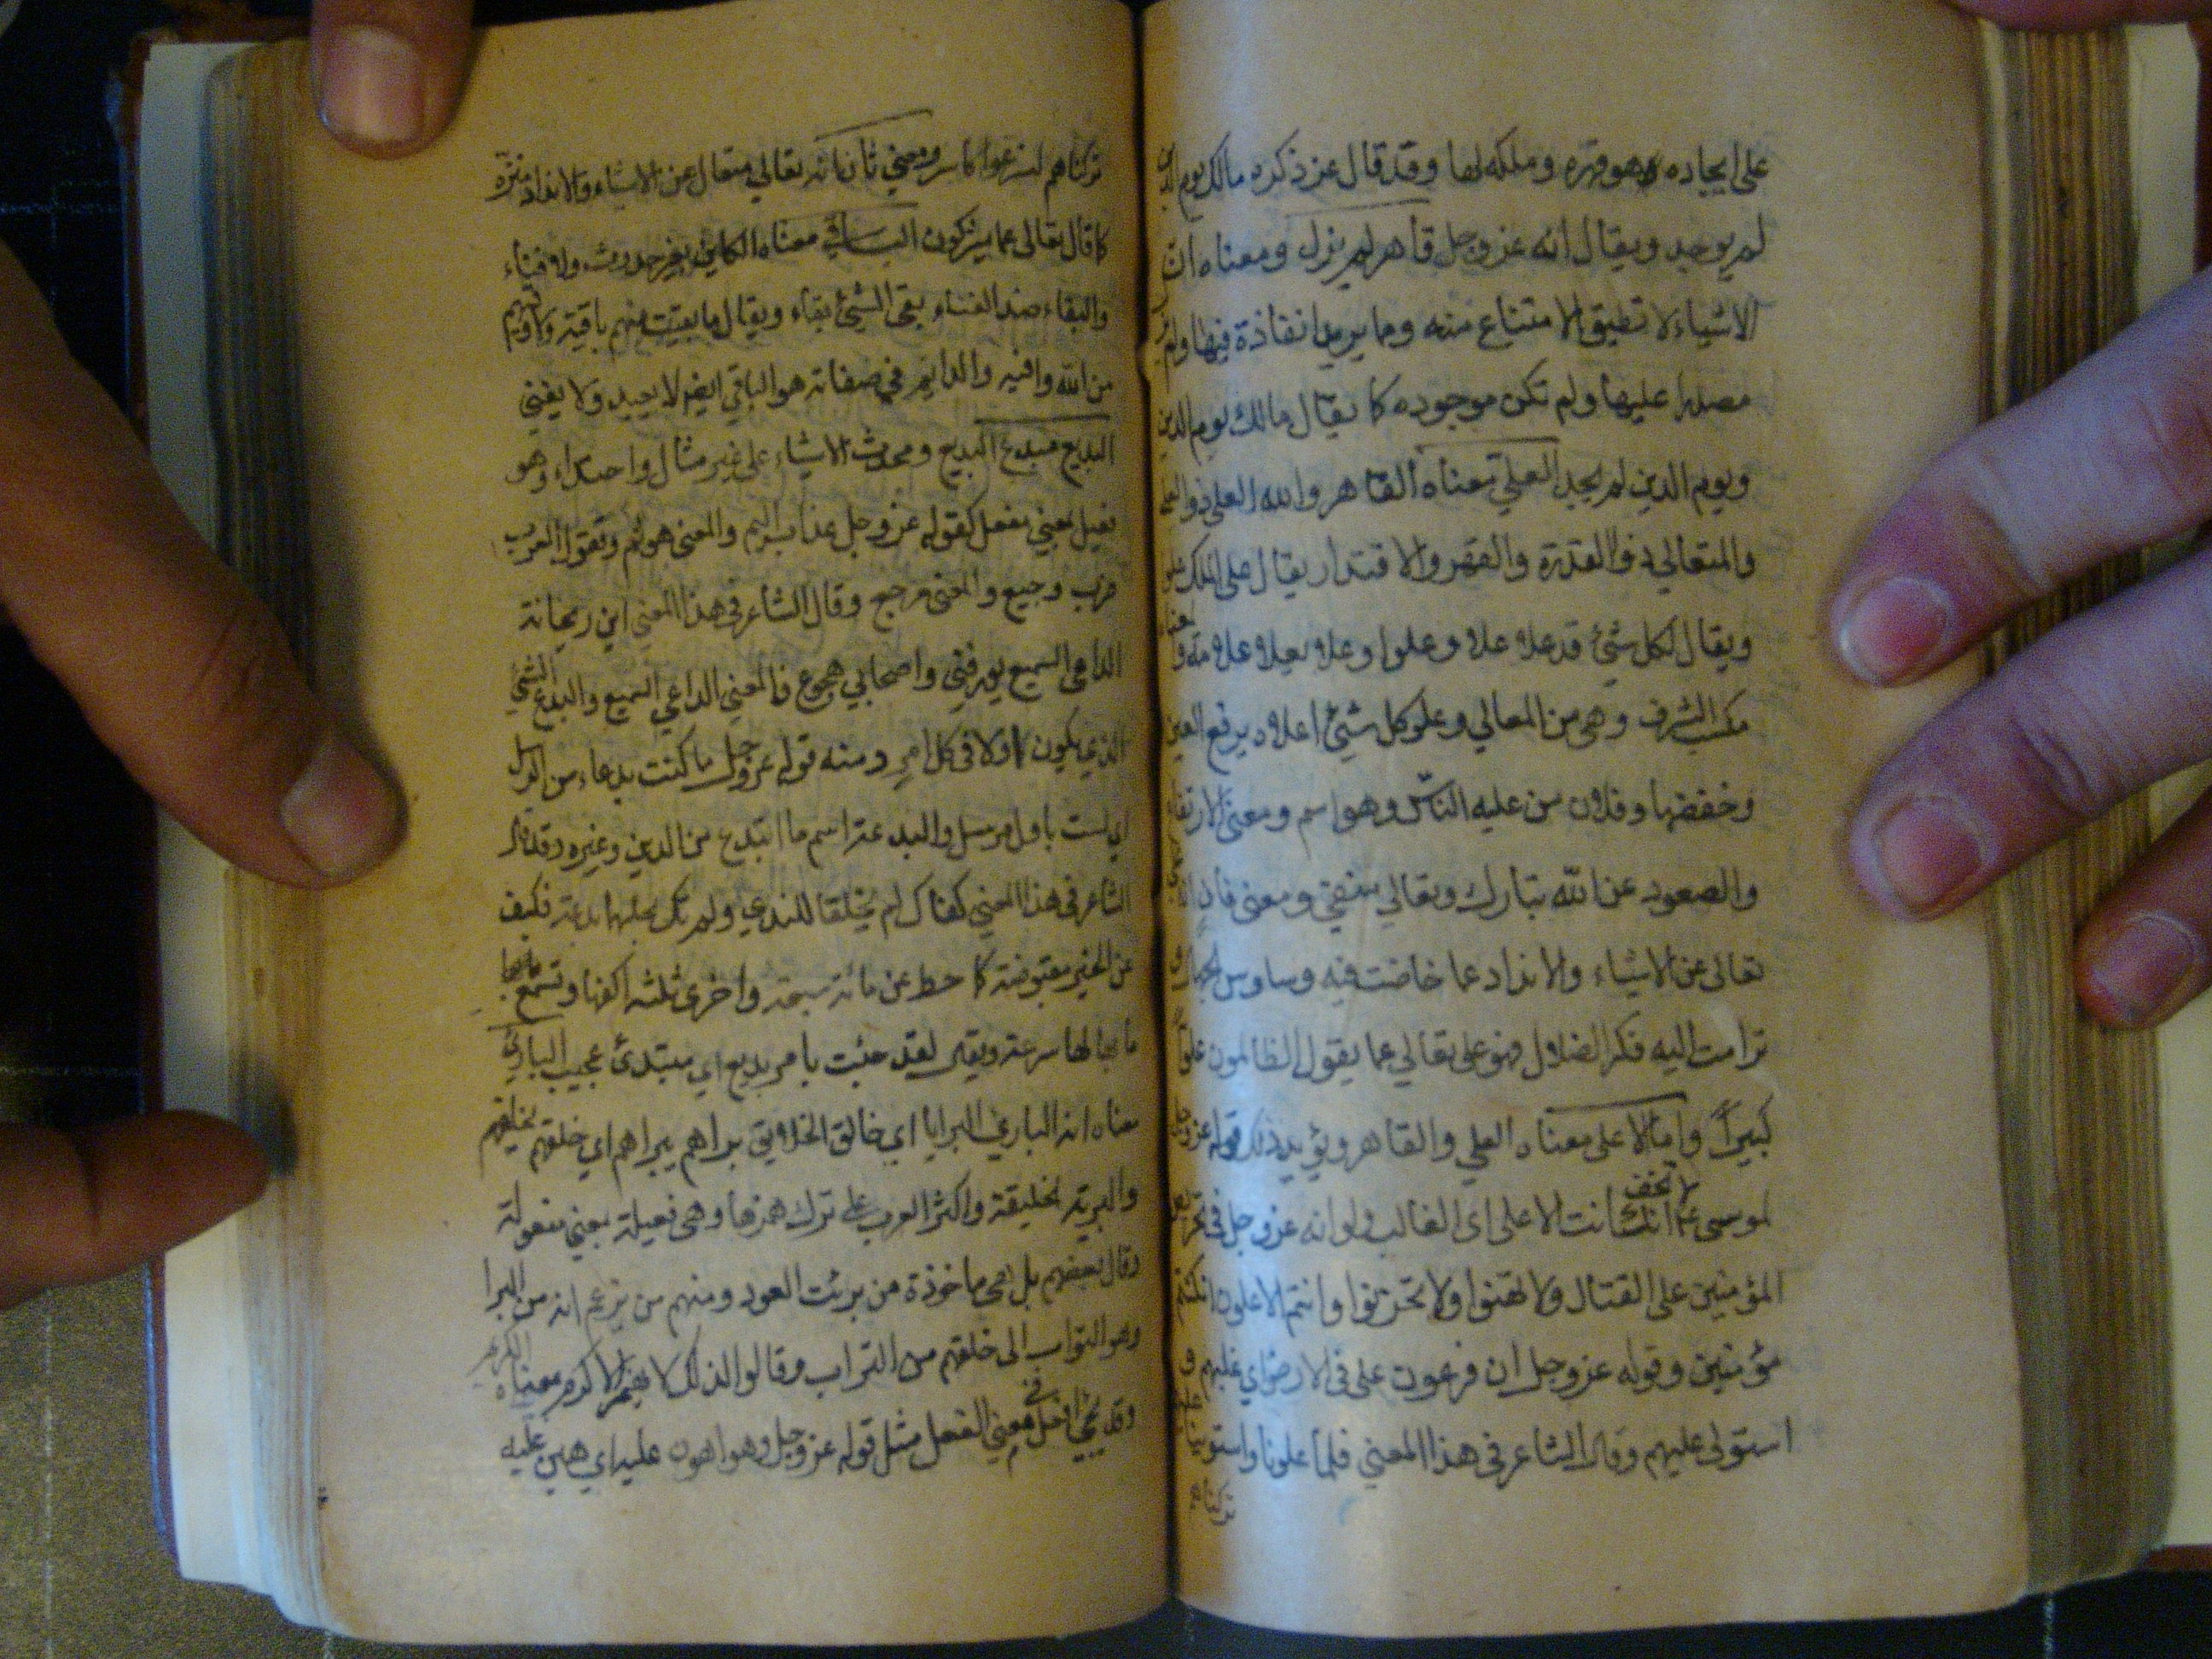 على ايجاده وهو قهره وملكه لها وقد قال عز ذكره مالك يوم الدين
لم يوجد ويقال انه عز وجل قاهر لم يزل ومعناه ان
الاشياء لا تطيق الامتناع منه وما يريد انفاذه فيها ولم يزل
مصدرا عليها ولم تكن موجوده كا يقال مالك يوم الدين
ويوم الدين لم يجد العلي معناه القاهر والله العلي ذو العلا
والمتعالي ذو القدرة والقهر والاقتدار يقال على الملك علو
ويقال لكل شئ قد علا علاء وعلوا وعلا يعلا علاء معناه
مكسب الشرف وهي من المعالي وعلو كل شئ اعلاه يرفع العين
وخفضها وفلان من علية الناس وهو اسم ومعنى الارتفاع
والصعود عن الله تبارك وتعالي منفي ومعنى ثان انه
تعالى عن الاشياء والانداد عما خاضت فيه وساوس الجهال و
ترامت اليه فكر الضلال فهو علي تعالي عما يقول الظالمون علوا
كبيراً واما الاعلى معناه العلي والقاهر ويؤيد ذلك قوله عز وجل
لا تخف
لموسى ع انك انت الاعلى اى الغالب وانه عز وجل في تحريض
المؤمنين على القتال ولا تهنوا ولا تحزنوا وانتم الاعلون ان كنتم
مؤمنين وقوله عز وجل ان فرعون على في الارض اي غلبهم و
استولى عليهم وقال الشاعر في هذا المعني فلما علونا واستوينا عليهم
تركناهم
تركناهم لنسر كاسر ومعني ثان انه تعالي متعال عن الاشياء والانداد متنزه
كا قال تعالى عما يشركون الباقي معناه الكائن بغير حدوث ولا فناء
والبقاء ضد الفناء بقى الشئ بقاء ويقال ما بقيت منهم باقية ولا وقتهم
من الله واقيه والدايم في صفاته هو الباقي ايضا لا يبيد ولا يفني
البديع مبدع البديع ومحدث الاشياء على غير مثال واحتذاء وهو
فعيل بمعني مفعل كقوله عز وجل عذاب اليم والمعني مولم وتقول العرب
ضرب وجيع والمعني موجع وقال الشاعر في هذا المعني امن ريحانة
الداعي السميع يورقني واصحابي هجوع فالمعني الداعي السميع والبدع الشئ
الذي يكون اولا في كل امر ومنه قوله عز وجل ما كنت بدعا من الرسل
اي لست باول مرسل والبدعة اسم ما ابتدع من الدين وغيره وقد قال
الشاعر في هذا المعني كفاك لم يخلقا للندي ولم يك بخلهما بدعة فكيف
عن الخير مقبوضة كا حط عن مائة سبعة واخرى ثلثة الفها وتسع مائها
ما لها سرعة ويقال لقد جئت بامر بديع اي مبتدئ عجيب البارئ
معناه انه البارئ البرايا اي خالق الخلايق براهم يبراهم اي خلقهم يخلقهم
والبرية الخليقة واكثر العرب على ترك همزها وهي فعيلة بمعني مفعولة
وقال بعضهم بل هي ماخوذة من بريت العود ومنهم من يزعم انه من البرا
وهو التراب اى خلقهم من التراب وقالوا لذلك لا يهمز الاكرم معناه الكريم
وقد يجئ افعل في معني الفعل مثل قوله عز وجل وهو اهون عليه اي هين عليه